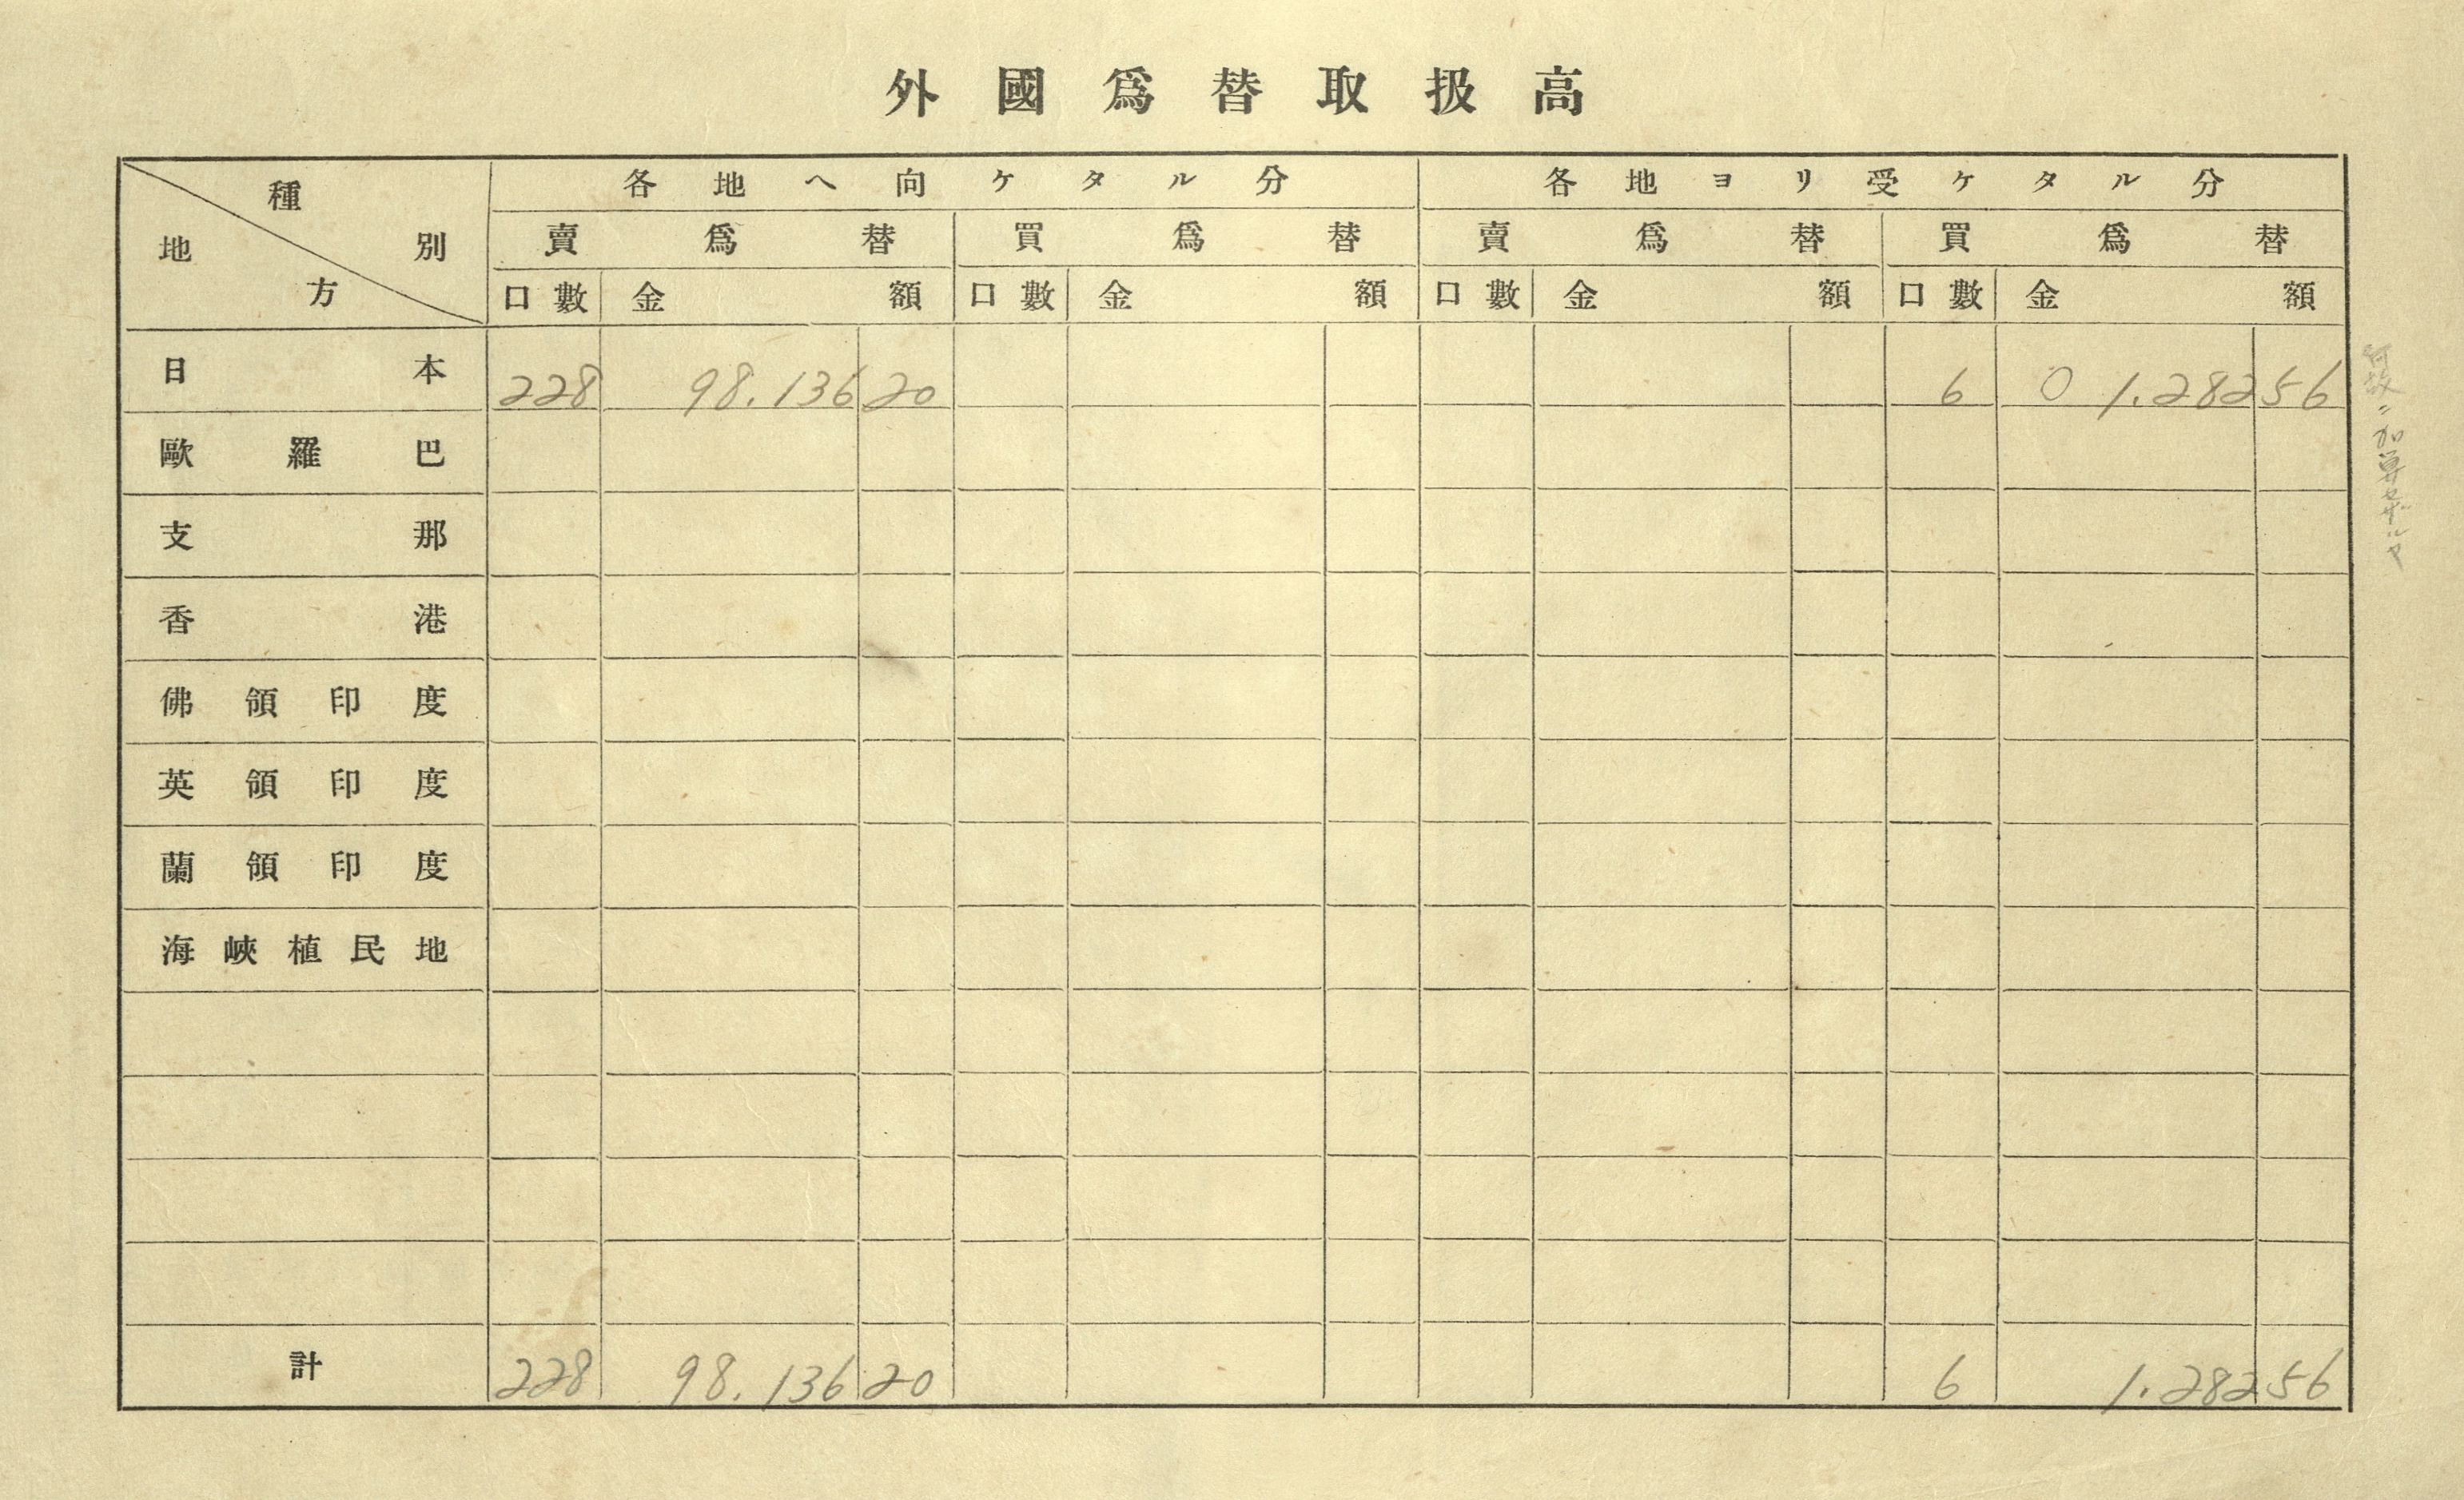 外國爲替取扱高
種別
地方
各地ヘ向ケタル分
各地ヨリ受ケタル分
賣爲替 買爲替 賣爲替 買爲替
口數 金額 口數 金額 口數 金額 口數 金額
日本 228 98.136 20 6 0 1.282 56
歐羅巴
支那
香港
佛領印度
英領印度
蘭領印度
海峽植民地
計 228 98.136 20 6 1.282 56
何故ニ加算セザルヤ